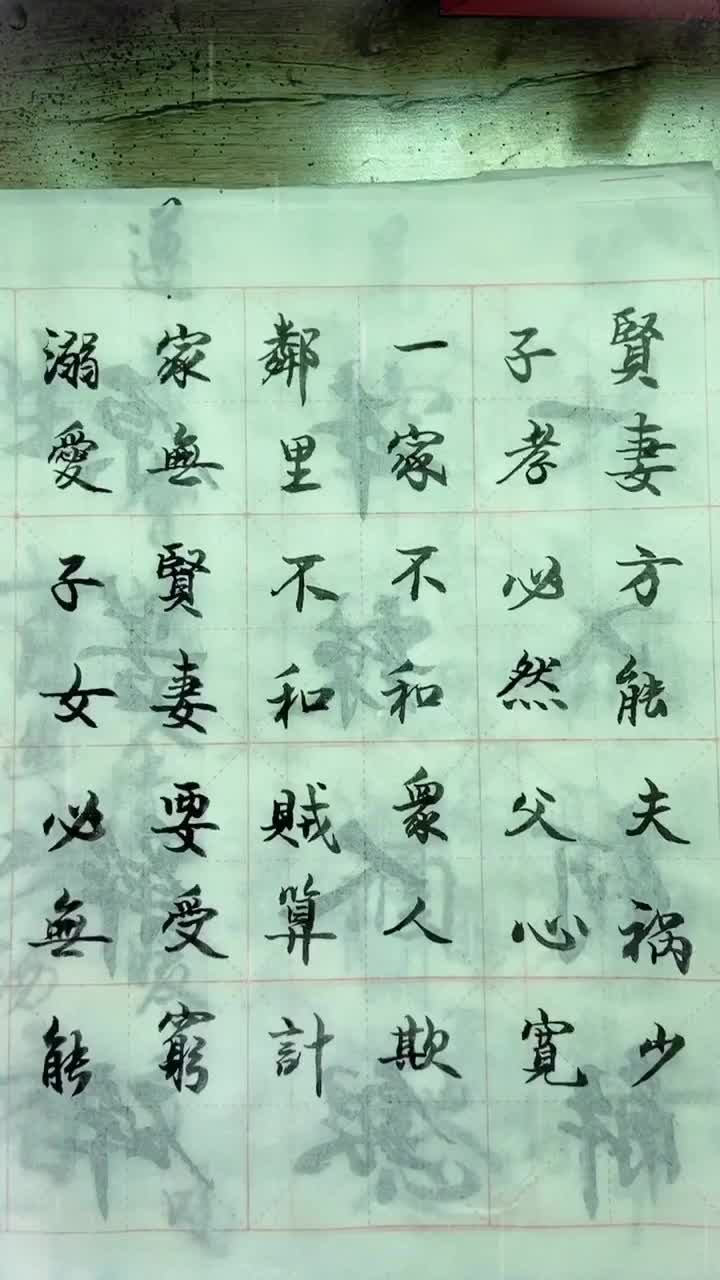 賢妻方能夫祸少
子孝必然父心寬
一家不和衆人欺
鄰里不和賊算計
家無賢妻要受窮
溺愛子女必無能